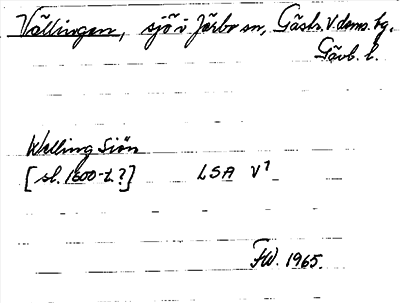 Vällingen, sjö i Järbo sn, Gästr. V. doms. hg,
Gävb. l.
Wälling Siön
[sl. 1600-t.?] LSA V1
FW. 1965.